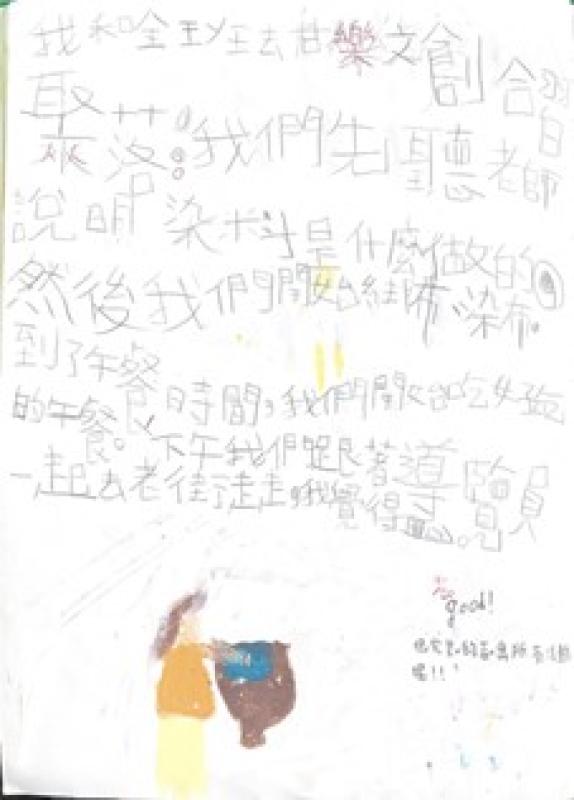 我和全班去甘樂文創合習
聚落。我們先聽老師
說明染料是什麼做的。
然後我們開始布染布。
到了午餐時間，我們開始吃好吃
的午餐。下午我們跟著導覽員
一起去老街走走，我覺得
good!